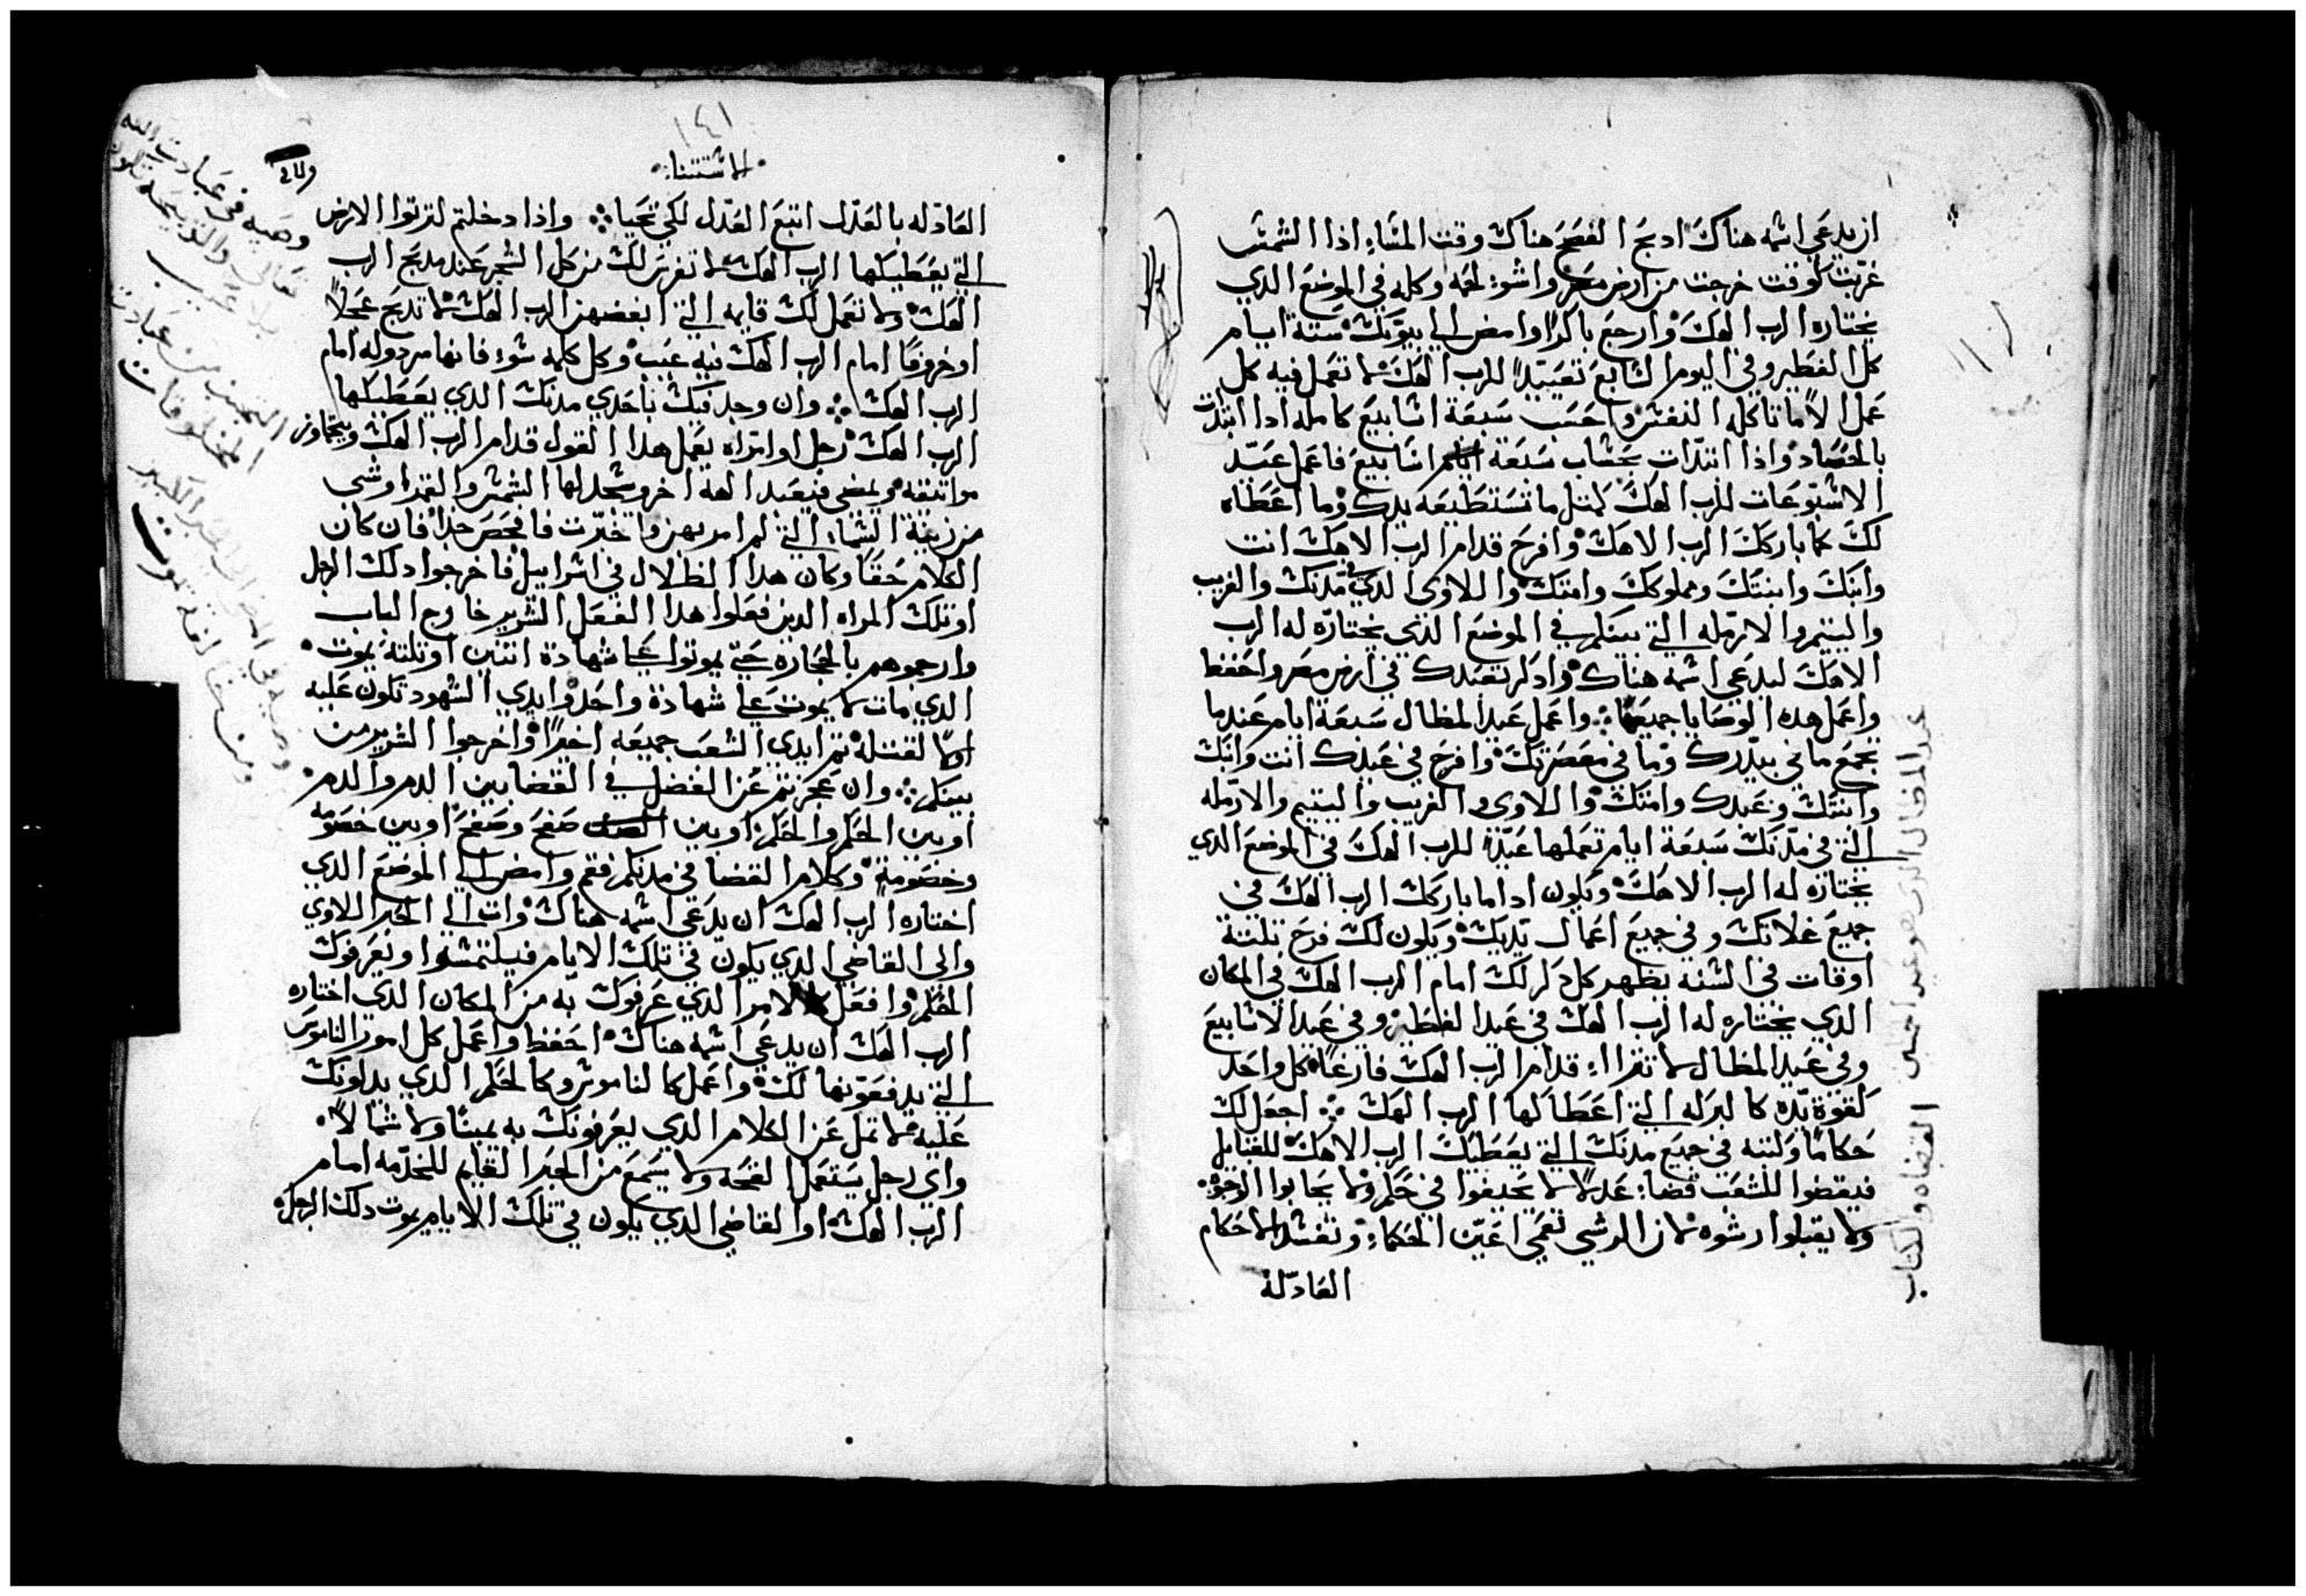 ان يدعي اسمه هناك ادبح الفصح هناك وقت المساء اذا الشمس
غربت كوقت خرجت من ارض مصر واشوء لحمه وكله في الموضع الدي
يختاره الرب الهك وارجع باكرا وامض الي بيوتك ستة ايام
كل الفطير وفي اليوم السابع تعييدا للرب الهك لا تعمل فيه كل
عمل الا ما تاكله النفس واحسب سبعة اسابيع كامله ادا ابتدات
بالحصاد واذا ابتدات بحساب سبعة اسابيع فاعمل عيد
الاسبوعات للرب الهك كمثل ما تستطيعه يدك وما اعطاه
لك كما باركك الرب الاهك وافرح قدام الرب الاهك انت
وابنك وابنتك ومملوكك وامتك واللاوي الدي في مدنك والغريب
واليتيم والارمله التي بينكم في الموضع الذي يختاره له الرب
الاهك ليدعي اسمه هناك وادكر تعبدك في ارض مصر واحفظ
واعمل هده الوصايا جميعها واعمل عيد المظال سبعة ايام عندما
تجمع ما في بيدرك وما في معصرتك وافرح في عيدك انت وابنك
وابنتك وعبدك وامتك واللاوي والغريب واليتيم والارمله
التي في مدنك سبعة ايام تعملها عيدا للرب الهك في الموضع الدي
يختاره له الرب الاهك ويكون ادا ما باركك الرب الهك في
جميع غلاتك وفي جميع اعمال يديك ويكون لك فرح تلتة
اوقات في السنه يظهر كل دكر لك امام الرب الهك في المكان
الدي يختاره له الرب الهك في عيد الفطير وفي عيد الاسابيع
وفي عيد المظال لا تترااء قدام الرب الهك فارغا كل واحد
كقوة يده كالبركه التي اعطالها الرب الهك اجعل لك
حكاما وكتبه في جميع مدنك التي يعطيك الرب الاهك للقبايل
فيقضوا للشعب قضاء عدلا لا يحيفوا في حكم ولا يحابوا الوجوه
ولا يقبلوا رشوه لان الرشي تعمي اعين الحكماء وتفسد الاحكام
العادلة
عيد المظال الدي هو عيد
القضاه والكتاب
١٤١
الاستثناء
العادله بالعدل اتبع العدل لكي تحيا واذا دخلتم لترتوا الارض
التي يعطيكها الرب الهك لا تغرس لك من كل الشجر عند مدبح الرب
الهك ولا تعمل لك قايمه التي ابغضهن الرب الهك لا تدبح عجلا
او خروفا امام الرب الهك فيه عيب وكل كلمه سوء فانها مردوله امام
الرب الهك وان وجد فيك باحدي مدنك الدي يعطيكها
الرب الهك رجل او امراه يعمل هدا القول قدام الرب الهك ويتجاوز
مواتيقه ويمضي فيعبد الهه اخر ويسجد لها الشمس والقمر او شي
من زينة السماء التي لم امر بهن واخبرت فافحص جدا فان كان
الكلام حقا وكان هدا الظلال في اسراييل فاخرجوا دلك الرجل
او تلك المراه الدين فعلوا هدا الفعل الشرير خارج الباب
وارجموهم بالحجاره حتي يموتوا علي شهادة اتنين او تلتة يموت
الدي مات لا يموت علي شهادة واحد وايدي الشهود تكون عليه
اولا لقتله تم ايدي الشعب جميعه اخيرا واخرجوا الشرير من
بينكم وان عجزتم عن الفصل في القضا بين الدم والدم
او بين الحكم والحكم او بين صفح وصفح او بين خصومه
وخصومة وكلام القضا في مدنكم فقم وامض الي الموضع الدي
اختاره الرب الهك ان يدعي اسمه هناك وات الي الحبر اللاوي
والي القاضي الدي يكون في تلك الايام فيلتمسوا ويعرفوك
الحكم وافعل الامر الدي عرفوك به من المكان الدي اختاره
الرب الهك ان يدعي اسمه هناك احفظ واعمل كل امور الناموس
التي يدفعونها لك واعمل كالناموس وكالحكم الدي يدلونك
عليه لا تمل عن الكلام الدي يعرفونك به يمينا ولا شمالا
واي رجل يستعمل القحه ولا يسمع من الحبر القايم للخدمه امام
الرب الهك او القاضي الدي يكون في تلك الايام يموت دلك الرجل
وصيه في عبادت الله
تعالي والدبيحه تكون
بلا عيب
التجنب من عبادت
المخلوقات